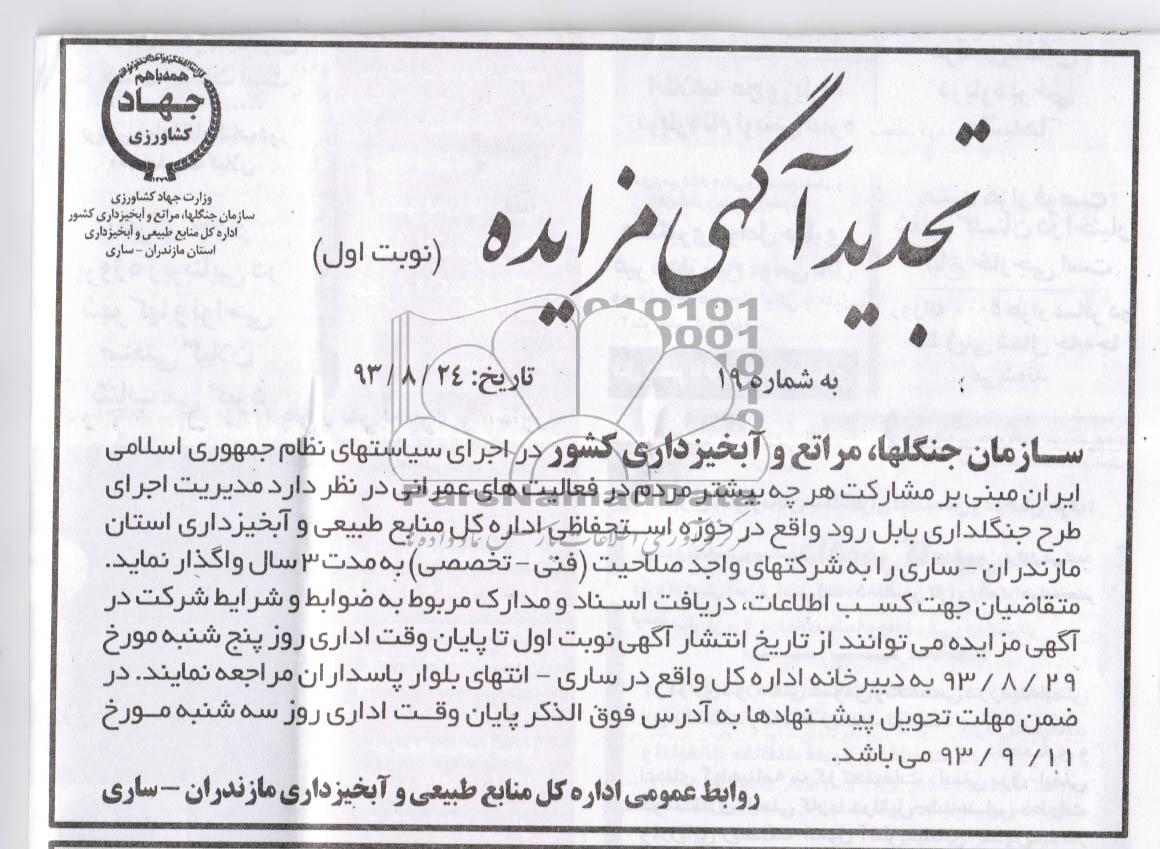 همه با هم
جهاد
کشاورزی
وزارت جهاد کشاورزی
سازمان جنگلها، مراتع و آبخیزداری کشور
اداره کل منابع طبیعی و آبخیزداری
استان مازندران - ساری
تجدید آگهی مزایده
(نوبت اول)
به شماره ۱۹ تاریخ: ۹۳/۸/۲۴
سازمان جنگلها، مراتع و آبخیزداری کشور در اجرای سیاستهای نظام جمهوری اسلامی
ایران مبنی بر مشارکت هر چه بیشتر مردم در فعالیت های عمرانی در نظر دارد مدیریت اجرای
طرح جنگلداری بابل رود واقع در حوزه استحفاظی اداره کل منابع طبیعی و آبخیزداری استان
مازندران - ساری را به شرکتهای واجد صلاحیت (فنی - تخصصی) به مدت ۳ سال واگذار نماید.
متقاضیان جهت کسب اطلاعات، دریافت اسناد و مدارک مربوط به ضوابط و شرایط شرکت در
آگهی مزایده می توانند از تاریخ انتشار آگهی نوبت اول تا پایان وقت اداری روز پنج شنبه مورخ
۹۳/۸/۲۹ به دبیرخانه اداره کل واقع در ساری - انتهای بلوار پاسداران مراجعه نمایند. در
ضمن مهلت تحویل پیشنهادها به آدرس فوق الذکر پایان وقت اداری روز سه شنبه مورخ
۹۳/۹/۱۱ می باشد.
روابط عمومی اداره کل منابع طبیعی و آبخیزداری مازندران - ساری
ParsNamadData